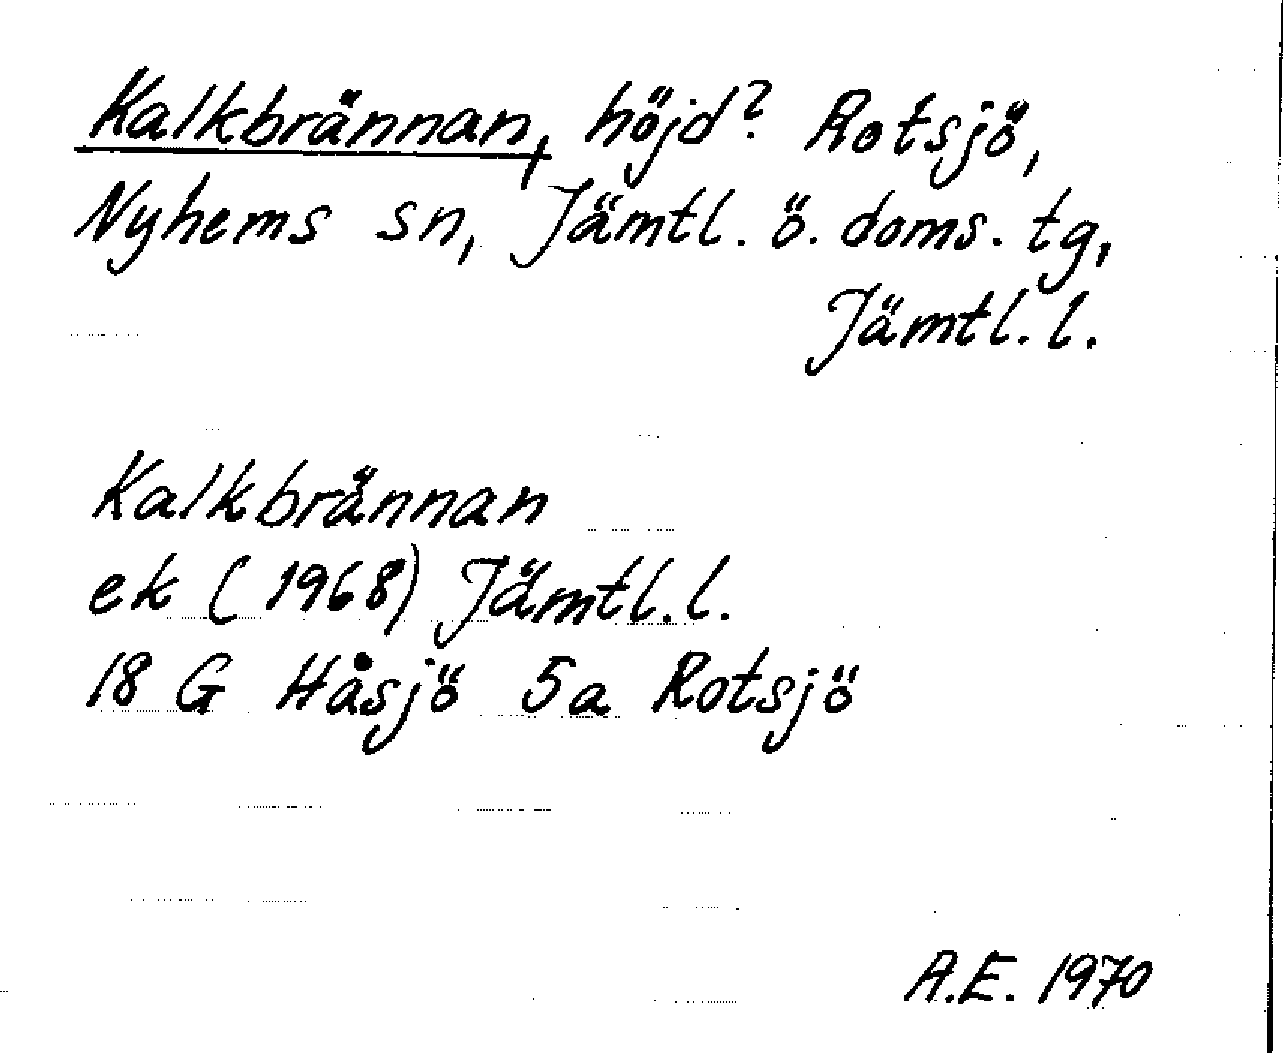 Kalkbrännan, höjd? Rotsjö,
Nyhems sn, Jämtl. ö. doms. tg,
Jämtl. l.
Kalkbrännan
ek (1968) Jämtl. l.
18 G Håsjö 5a Rotsjö
A.E. 1970